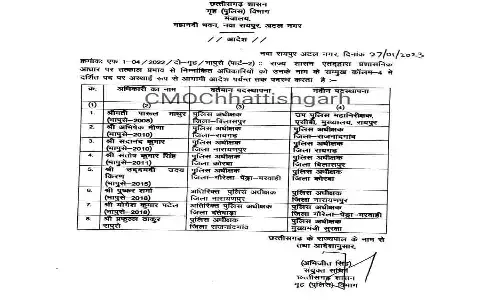 छत्तीसगढ़ शासन
गृह (पुलिस) विभाग
मंत्रालय,
महानदी भवन, नवा रायपुर, अटल नगर
// आदेश //
नवा रायपुर अटल नगर, दिनांक 27/01/2023
क्रमांक: एफ 1-04/2022/दो-गृह/भापुसे (पार्ट-2) :: राज्य शासन एतद्द्वारा प्रशासनिक
आधार पर तत्काल प्रभाव से निम्नांकित अधिकारियों को उनके नाम के सम्मुख कॉलम-4 में
दर्शित पद पर अस्थाई रूप से आगामी आदेश पर्यन्त तक पदस्थ करता है :-
क. अधिकारी का नाम वर्तमान पदस्थापना नवीन पदस्थापना
(1) (2) (3) (4)
CMOChhattishgarh
1. श्रीमती पारूल माथुर (भापुसे-2008) पुलिस अधीक्षक जिला-बिलासपुर उप पुलिस महानिरीक्षक, मुख्यालय, रायपुर
2. श्री अभिषेक मीणा (भापुसे-2010) पुलिस अधीक्षक जिला-रायगढ़ पुलिस अधीक्षक जिला-राजनांदगांव
3. श्री सदानंद कुमार (भापुसे-2010) पुलिस अधीक्षक जिला नारायणपुर पुलिस अधीक्षक जिला रायगढ़
4. श्री संतोष कुमार सिंह (भापुसे-2011) पुलिस अधीक्षक जिला कोरबा पुलिस अधीक्षक जिला बिलासपुर
5. श्री उदय किरण (भापुसे-2015) पुलिस अधीक्षक जिला-गौरेला-पेंड्रा-मरवाही पुलिस अधीक्षक जिला कोरबा
6. श्री पुष्कर शर्मा (भापुसे-2018) अतिरिक्त पुलिस अधीक्षक जिला नारायणपुर पुलिस अधीक्षक जिला नारायणपुर
7. श्री योगेश कुमार पटेल (भापुसे-2018) अतिरिक्त पुलिस अधीक्षक जिला दंतेवाड़ा पुलिस अधीक्षक जिला गौरेला-पेंड्रा-मरवाही
8. श्री प्रफुल्ल ठाकुर रापुसे पुलिस अधीक्षक जिला राजनांदगांव पुलिस अधीक्षक मुख्यमंत्री सुरक्षा
छत्तीसगढ़ के राज्यपाल के नाम से
तथा आदेशानुसार,
(अभिजीत सिंह)
संयुक्त सचिव
छत्तीसगढ़ शासन
गृह (पुलिस) विभाग